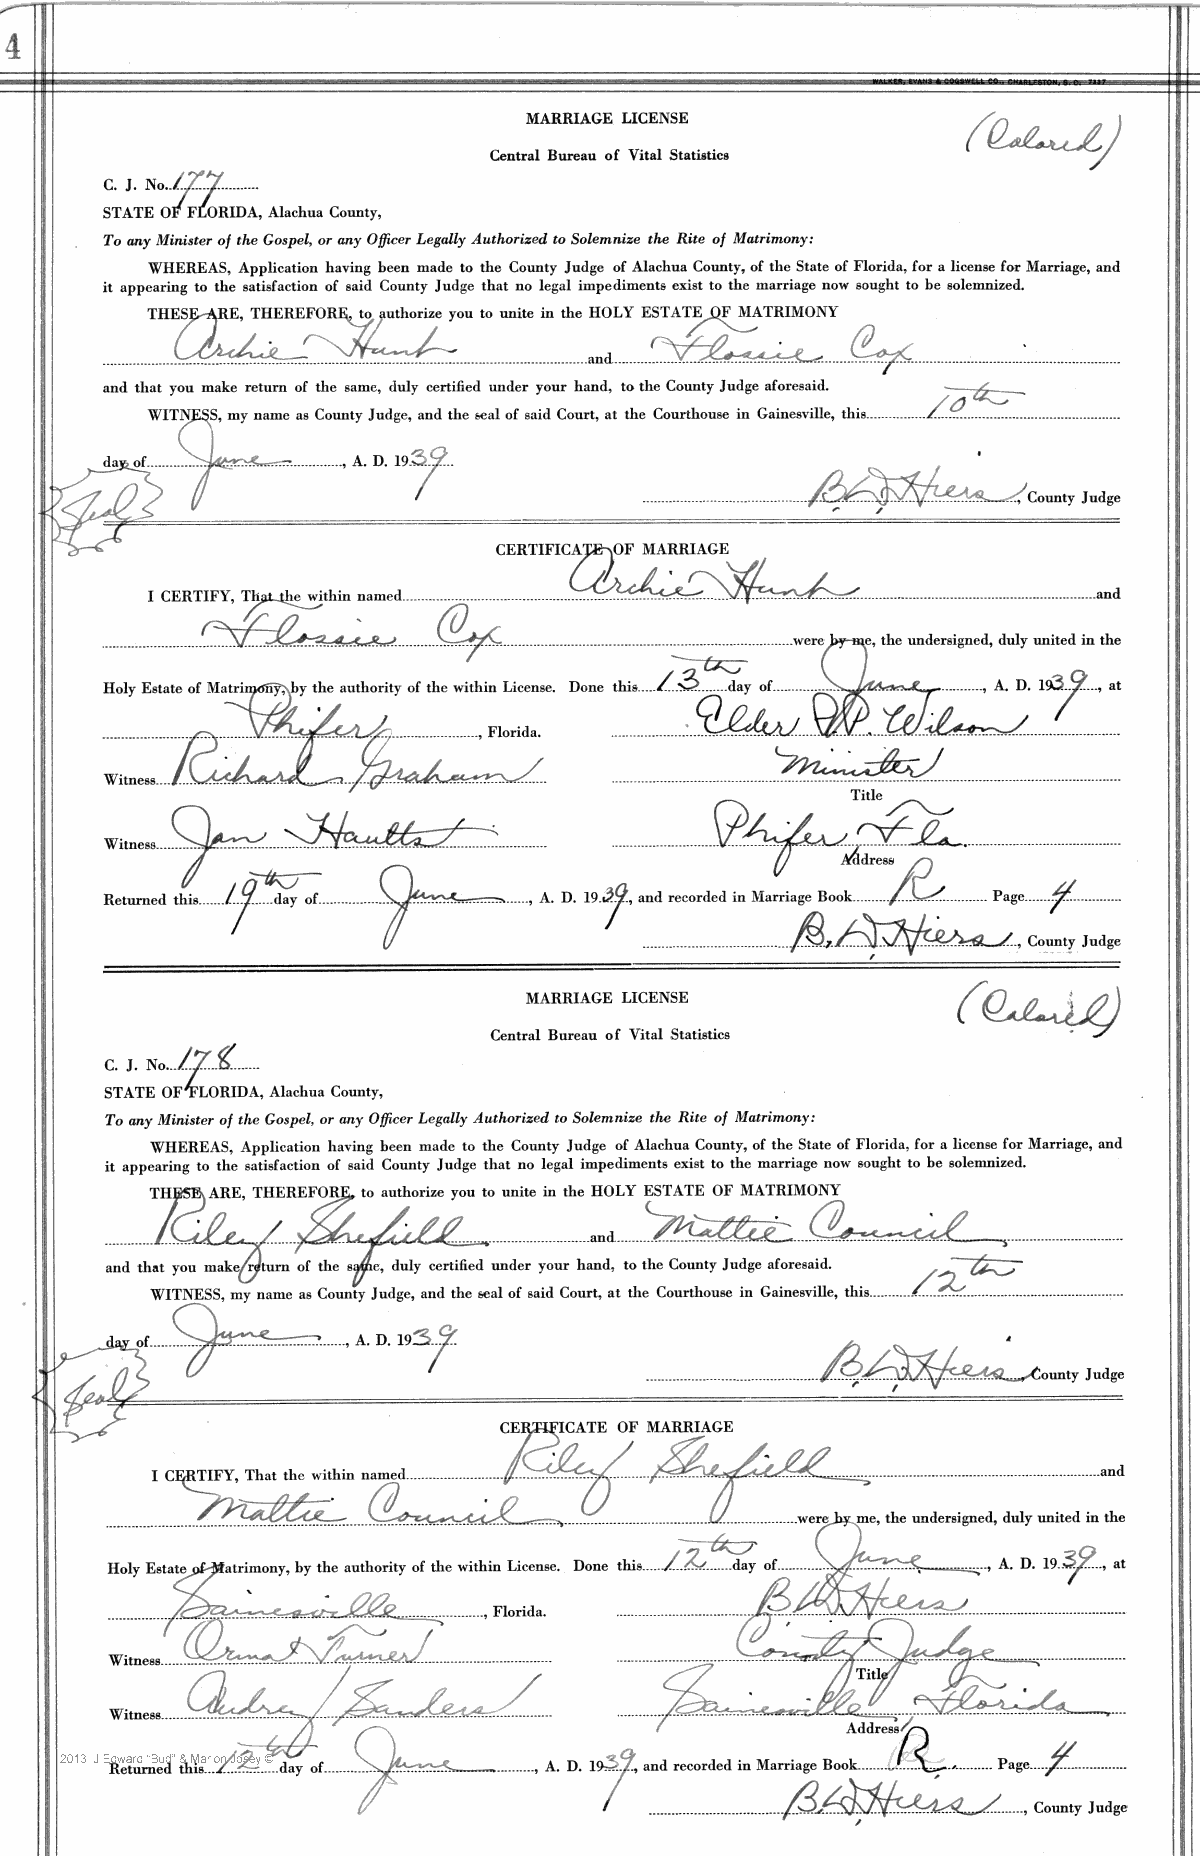 4
WALKER, EVANS & COGSWELL CO., CHARLESTON, S. C. 7327
MARRIAGE LICENSE
(Colored)
Central Bureau of Vital Statistics
C. J. No. 177
STATE OF FLORIDA, Alachua County,
To any Minister of the Gospel, or any Officer Legally Authorized to Solemnize the Rite of Matrimony:
WHEREAS, Application having been made to the County Judge of Alachua County, of the State of Florida, for a license for Marriage, and
it appearing to the satisfaction of said County Judge that no legal impediments exist to the marriage now sought to be solemnized.
THESE ARE, THEREFORE, to authorize you to unite in the HOLY ESTATE OF MATRIMONY
Archie Hunt and Flossie Cox
and that you make return of the same, duly certified under your hand, to the County Judge aforesaid.
WITNESS, my name as County Judge, and the seal of said Court, at the Courthouse in Gainesville, this 10th
day of June, A. D. 1939
Seal
B. D. Hiers, County Judge
CERTIFICATE OF MARRIAGE
I CERTIFY, That the within named Archie Hunt and
Flossie Cox were by me, the undersigned, duly united in the
Holy Estate of Matrimony, by the authority of the within License. Done this 13th day of June, A. D. 1939, at
Phifer, Florida. Elder P. Wilson
Witness Richard Graham Minister
Title
Witness Jan Phifer Fla.
Address
Returned this 19th day of June, A. D. 1939, and recorded in Marriage Book R Page 4
B. D. Hiers, County Judge
MARRIAGE LICENSE
(Colored)
Central Bureau of Vital Statistics
C. J. No. 178
STATE OF FLORIDA, Alachua County,
To any Minister of the Gospel, or any Officer Legally Authorized to Solemnize the Rite of Matrimony:
WHEREAS, Application having been made to the County Judge of Alachua County, of the State of Florida, for a license for Marriage, and
it appearing to the satisfaction of said County Judge that no legal impediments exist to the marriage now sought to be solemnized.
THESE ARE, THEREFORE, to authorize you to unite in the HOLY ESTATE OF MATRIMONY
Riley Shefield and Mattie Council
and that you make return of the same, duly certified under your hand, to the County Judge aforesaid.
WITNESS, my name as County Judge, and the seal of said Court, at the Courthouse in Gainesville, this 12th
day of June, A. D. 1939
Seal
B. D. Hiers, County Judge
CERTIFICATE OF MARRIAGE
I CERTIFY, That the within named Riley Shefield and
Mattie Council were by me, the undersigned, duly united in the
Holy Estate of Matrimony, by the authority of the within License. Done this 12th day of June, A. D. 1939, at
Gainesville, Florida. B. D. Hiers
Witness Turner County Judge
Title
Witness Audrey Sanders Gainesville Florida
Address
2013 J Edward "Bud" & Marion Josey ©
Returned this 12th day of June, A. D. 1939, and recorded in Marriage Book R. Page 4
B. D. Hiers, County Judge